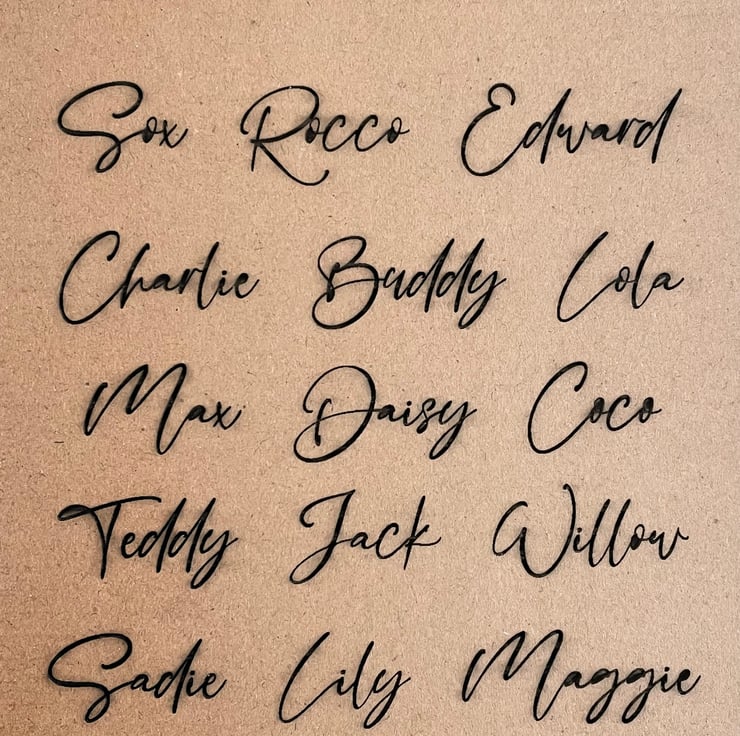 Sox Rocco Edward
Charlie Buddy Lola
Max Daisy Coco
Teddy Jack Willow
Sadie Lily Maggie